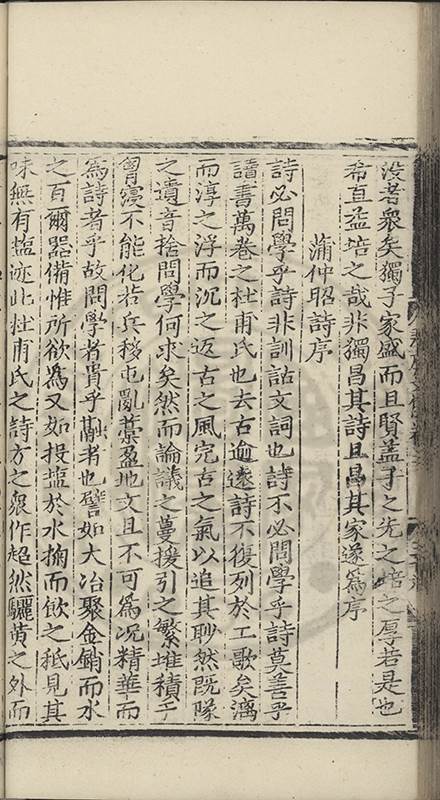 没者衆矣獨子家盛而且賢蓋子之先之培之厚若是也
希直孟培之哉非獨昌其詩且昌其家遂為序
蒲仲昭詩序
詩必問學乎詩非訓詁文詞也詩不必問學乎詩莫善乎
讀書萬卷之杜甫氏也去古逾遠詩不復列於工歌矣漓
而淳之浮而沉之返古之風完古之氣以追其眇然既隊
之遺音捨問學何求矣然而論議之蔓援引之繁堆積乎
胷寖不能化若兵移屯亂藁盈地文且不可為况精華而
為詩者乎故問學者貴乎融者也譬如大冶聚金銷而水
之百爾器備惟所欲為又如投塩於水掬而飲之秪見其
味無有塩迹此杜甫氏之詩方之衆作超然驪黄之外而